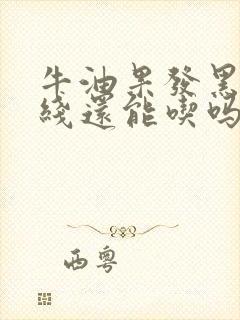 牛油果發黑
綫還能喫嗎
西粵